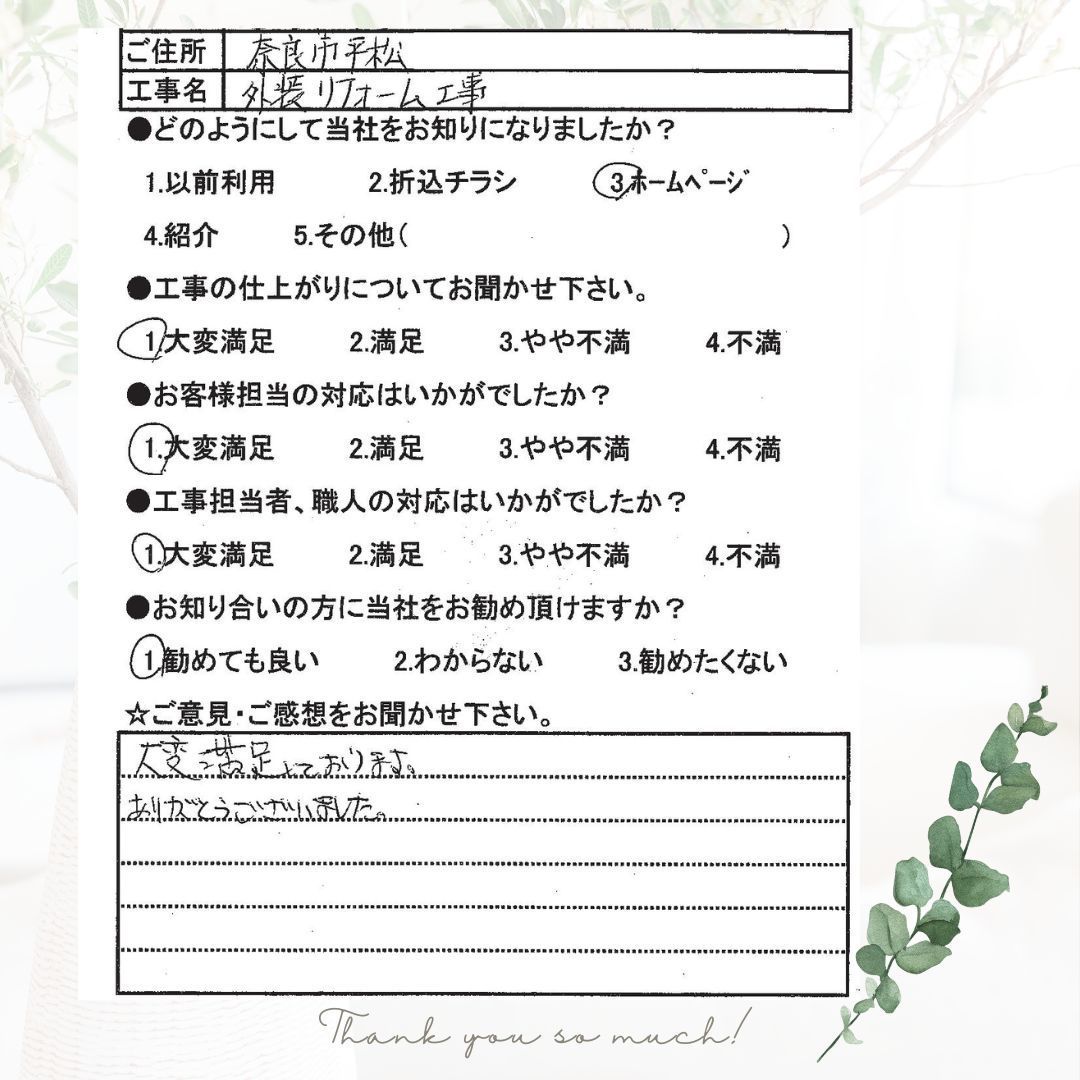 ご住所 奈良市平松
工事名 外装リフォーム工事
●どのようにして当社をお知りになりましたか？
1.以前利用 2.折込チラシ 3.ホームページ
4.紹介 5.その他( )
●工事の仕上がりについてお聞かせ下さい。
1.大変満足 2.満足 3.やや不満 4.不満
●お客様担当の対応はいかがでしたか？
1.大変満足 2.満足 3.やや不満 4.不満
●工事担当者、職人の対応はいかがでしたか？
1.大変満足 2.満足 3.やや不満 4.不満
●お知り合いの方に当社をお勧め頂けますか？
1.勧めても良い 2.わからない 3.勧めたくない
☆ご意見・ご感想をお聞かせ下さい。
大変満足しております。
ありがとうございました。
Thank you so much!